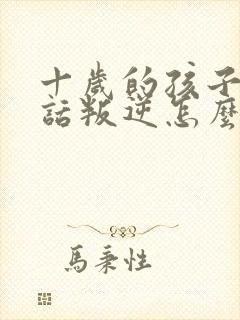 十歲的孩子
話叛逆怎麼
馬秉性